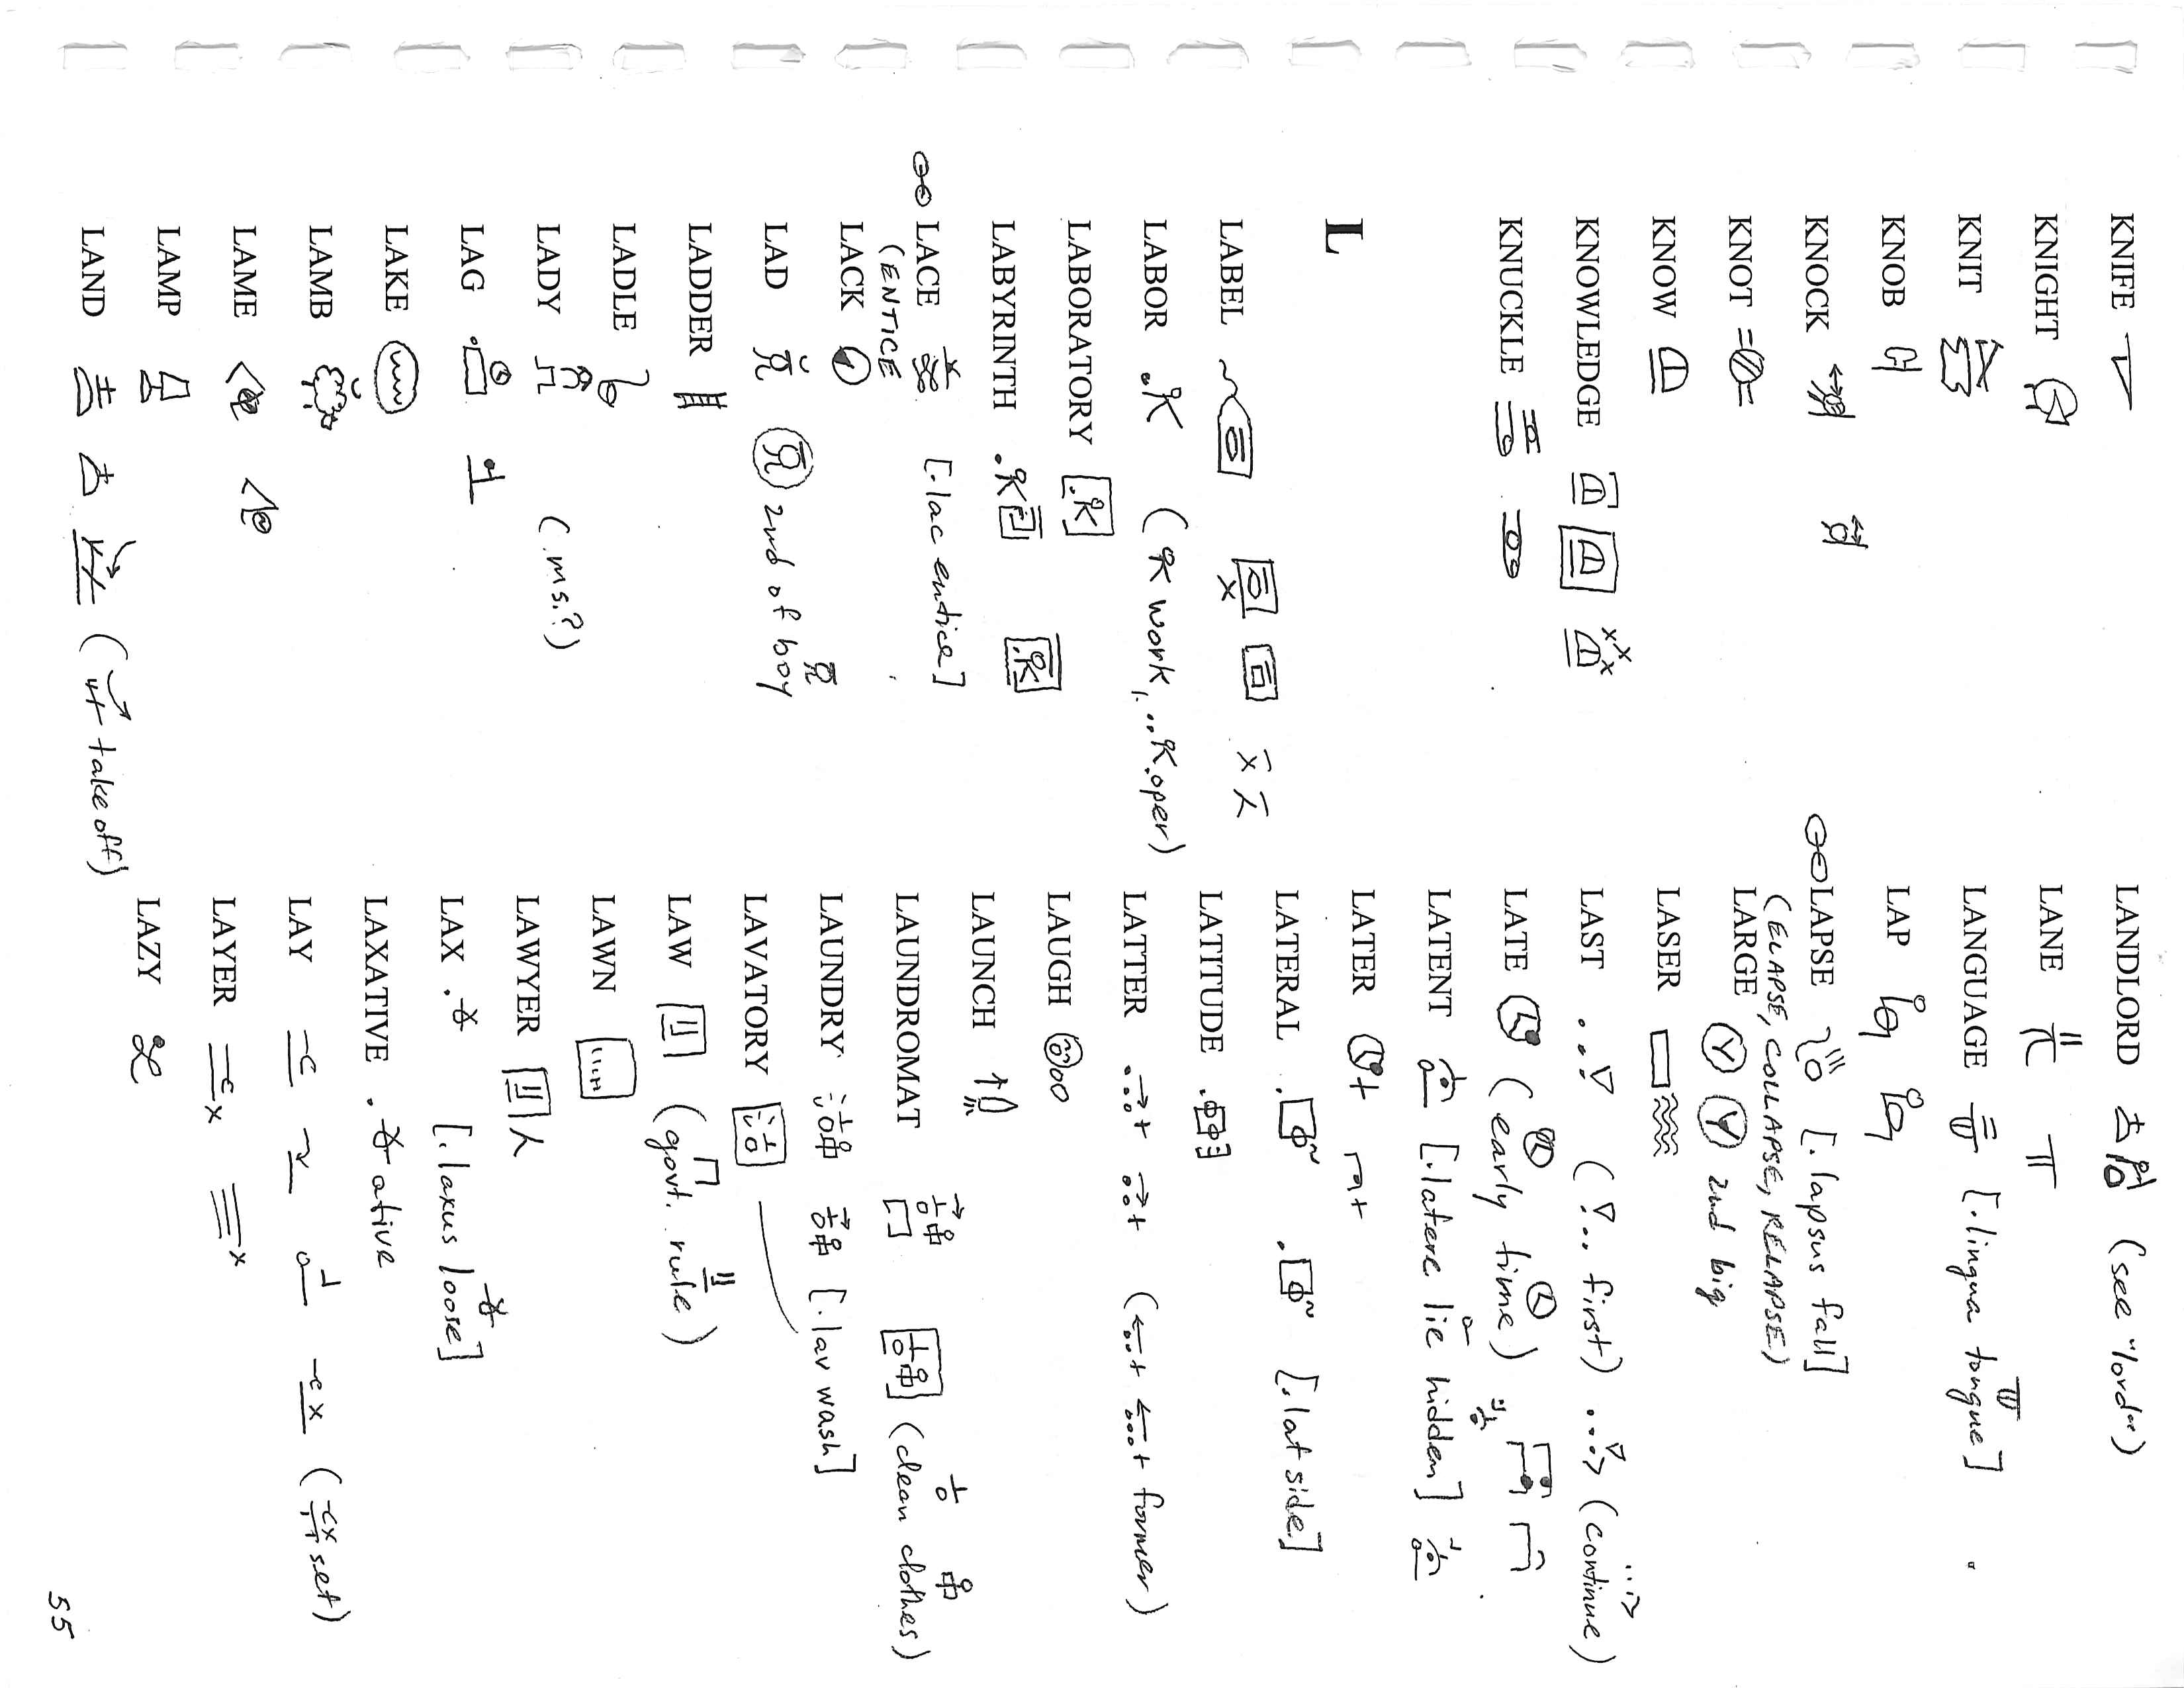 KNIFE
KNIGHT
KNIT
KNOB
KNOCK
KNOT
KNOW
KNOWLEDGE
KNUCKLE
L
LABEL
LABOR (work, oper)
LABORATORY
LABYRINTH
LACE [.lac entice]
(ENTICE
LACK
LAD 2nd of boy
LADDER
LADLE
LADY (ms.?)
LAG
LAKE
LAMB
LAME
LAMP
LAND (take off)
LANDLORD (see "lord")
LANE
LANGUAGE [.lingua tongue]
LAP
LAPSE [.lapsus fall]
(ELAPSE, COLLAPSE, RELAPSE)
LARGE 2nd big
LASER
LAST (first) (continue)
LATE (early time)
LATENT [.latere lie hidden]
LATER
LATERAL [.lat side]
LATITUDE
LATTER (former)
LAUGH
LAUNCH
LAUNDROMAT (clean clothes)
LAUNDRY [.lav wash]
LAVATORY
LAW (govt. rule)
LAWN
LAWYER
LAX [.laxus loose]
LAXATIVE ative
LAY (set)
LAYER
LAZY
55